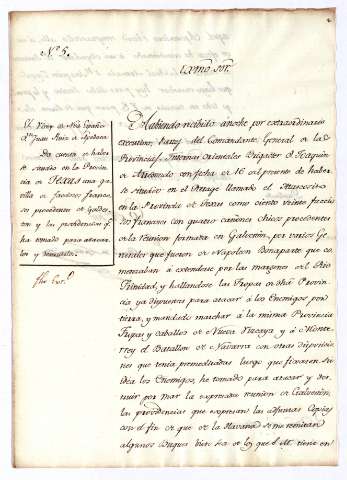 Nº. 5.
Exmo. Sor.
El Virey de Nva España
Dn. Juan Ruiz de Apodaca
Da cuenta de haberse
situado en la Provincia
de Texas una gavilla
de facciosos franceses
procedentes de Galveston
y las providencias qe.
ha tomado para atacarlos
y
Habiendo recibido anoche por extraordinario
executivo, Partes del Comandante General de las
Provincias Internas Orientales Brigadier Dn. Joaquin
de Arredondo con fecha de 16 del presente de haberse
situado en el Parage llamado el Atascosito
en la Provincia de Texas como ciento veinte facciosos
franceses con quatro cañones chicos procedentes
de la reunion formada en Galveston, por varios Generales
que fueron de Napoleon Bonaparte que comenzaban
á extenderse por las margenes del Rio
Trinidad, y hallandose las Tropas de dha Provincia
ya dispuestas para atacar á los Enemigos por
tierra, y mandado marchar á la misma Provincia
Tropas y caballos de Nueva Vizcaya y á Monterrey
el Batallon de Navarra con otras disposiciones
que tenia premeditadas luego que fixaron
los Enemigos, he tomado para atacar y destruir
por mar la expresada reunion de Galveston,
las providencias que expresan las adjuntas Copias
con el fin de que de la Havana se me remitan
algunos Buques de los que S.M. tiene en